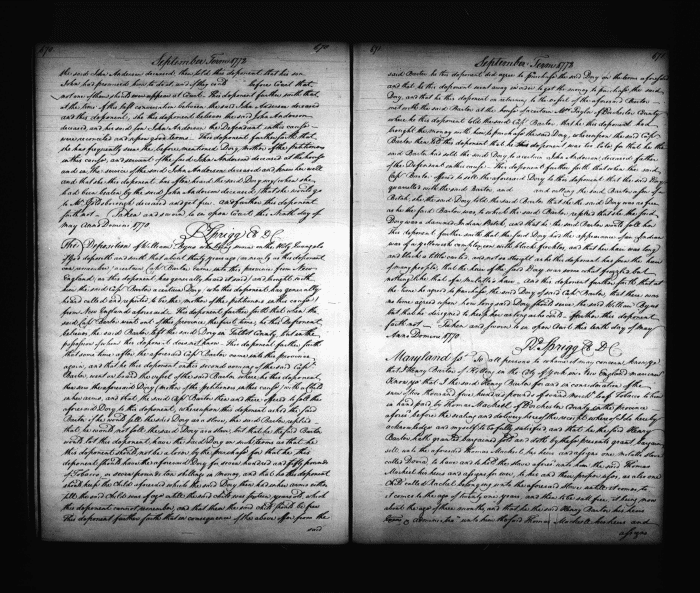 670
670
September Term 1773
the said John Anderson deceased then told this deponent that his son
John had promised him to do it and if they went before Court that
not one of them should ever appear at Court. This deponent further saith that
at the time of the last conversation between the said John Anderson deceased
and this deponent, she this deponent believes the said John Anderson
deceased, and his son John Anderson the Defendant in this cause
were reconciled and upon good terms. This deponent further saith that
she has frequently seen the before mentioned Dory mother of the petitioners
in this cause, and servant of the said John Anderson deceased at the house
and in the service of the said John Anderson deceased and knew her well
and that she this deponent has often heard the said Dory say when she
had been beaten by the said John Anderson deceased, that she would go
to Mr Goldsborough deceased and get free. And further this deponent
saith not — Taken and sworn to in open Court this Ninth day of
May Anno Domini 1770
Rd Sprigg Cl. P.C.
The Deposition of William Byus who being sworn on the Holy Evangels
of God deposeth and saith that about thirty years ago as nearly as this deponent
can remember a certain Capt Burton came into this province from New
England, as this deponent has generally heard it said, and brought with
him the said Capt Burton a certain Dory who this deponent has generally
heard called and reputed to be the mother of the petitioners in this cause
from New England aforesaid. This deponent further saith that when the
said Capt Burton went out of this province the first time, he this Deponent
believes, the said Burton left the said Dory in Talbot County, but in the
possession of whom this deponent doesn't know. This deponent further saith
that some time after the aforesaid Capt Burton came into this province
again, and that he this deponent on the second coming of the said Capt
Burton went on board the vessel of the said Burton where he this deponent
there saw the aforesaid Dory (mother of the petitioners in this cause) with a Child
in her arms, and that the said Capt Burton then and there offered to sell the
aforesaid Dory to this deponent, whereupon this deponent asked the said
Burton if he would sell the said Dory as a slave, the said Burton replied
that he would not sell the said Dory as a slave but that he the said Burton
would let this deponent have the said Dory on such terms as that he
this deponent should not be a loser by the purchase for that he this
deponent should have the aforesaid Dory for seven hundred and fifty pounds
of Tobacco, or seven pounds ten shillings in money, and that he this deponent
should keep the Child aforesaid which the said Dory then had in her arms either
till the said Child was of age or till the said child was sixteen years old, which
this deponent cannot remember, and that then the said child should be free
This deponent further saith that in consequence of the above offer from the
said
671
September Term 1773
said Burton he this deponent did agree to purchase the said Dory on the terms aforesaid
and that he this deponent went away in order to get the money to purchase the said
Dory, and that he this deponent on returning to the vessel of the aforesaid Burton
met with the said Burton at the house of a certain Mrs Taylor of Dorchester County
where he this deponent told the said Capt Burton that he this deponent had
brought the money with him to purchase the said Dory, whereupon the said Capt
Burton then told this deponent that he this deponent was too late for that he the
said Burton had sold the said Dory to a certain John Anderson deceased father
of the Defendant in this cause. This deponent further saith that when the said
Capt Burton offered to sell the aforesaid Dory to this deponent that the said Dory
quarrelled with the said Burton and and calling the said Burton a son of a
Bitch, she the said Dory told the said Burton that she the said Dory was as free
as he the said Burton was, to which the said Burton replied that she the said
Dory was a damned Indian Bitch, and that he the said Burton would sell her
This deponent further saith that the said Dory had the appearance of an Indian
was of a yellowish complexion with black freckles, and that her hair was long
and black a little curled, and not so straight as he this deponent has seen the hair
of many people, that the hair of the said Dory was somewhat frizzled but
nothing like that of a Mulatto's hair. And this deponent further saith that at
the time he agreed to purchase the said Dory of said Capt Burton that there was
no time agreed upon how long said Dory should serve the said William Byus
but that he designed to keep her as long as he could. And further this deponent
saith not — Taken and sworn to in open Court this tenth day of May
Anno Domini 1770
Rd Sprigg Cl. P.C.
Maryland ss. To all persons to whom it may concern Know ye
that I Henry Burton of Kittery in the Cty of York in New England mariner
Know ye that I the said Henry Burton for and in consideration of the
sum of two thousand five hundred pounds of sound merchble leaf Tobacco to him
in hand paid by Thomas Mackeel of Dorchester County in the province
aforesd before the sealing and delivery hereof the receipt whereof I do hereby
acknowledge and myself to be fully satisfied and that he the said Henry
Burton hath granted bargained sold and doth by these presents grant bargain
sell unto the aforesaid Thomas Mackeel his heirs and assigns one mulatto slave
called Dinah, to have and to hold the slave aforesd unto him the said Thomas
Mackeel his heirs and assigns for ever to his and their proper use, as also one
Child called Rachel belonging unto the aforesaid slave until it comes to
it comes to the age of twenty one years, and then to be sett free, it being now
about the age of three months, and that he the said Henry Burton his heirs
unto him the said Thomas Mackeel his heirs and
assigns